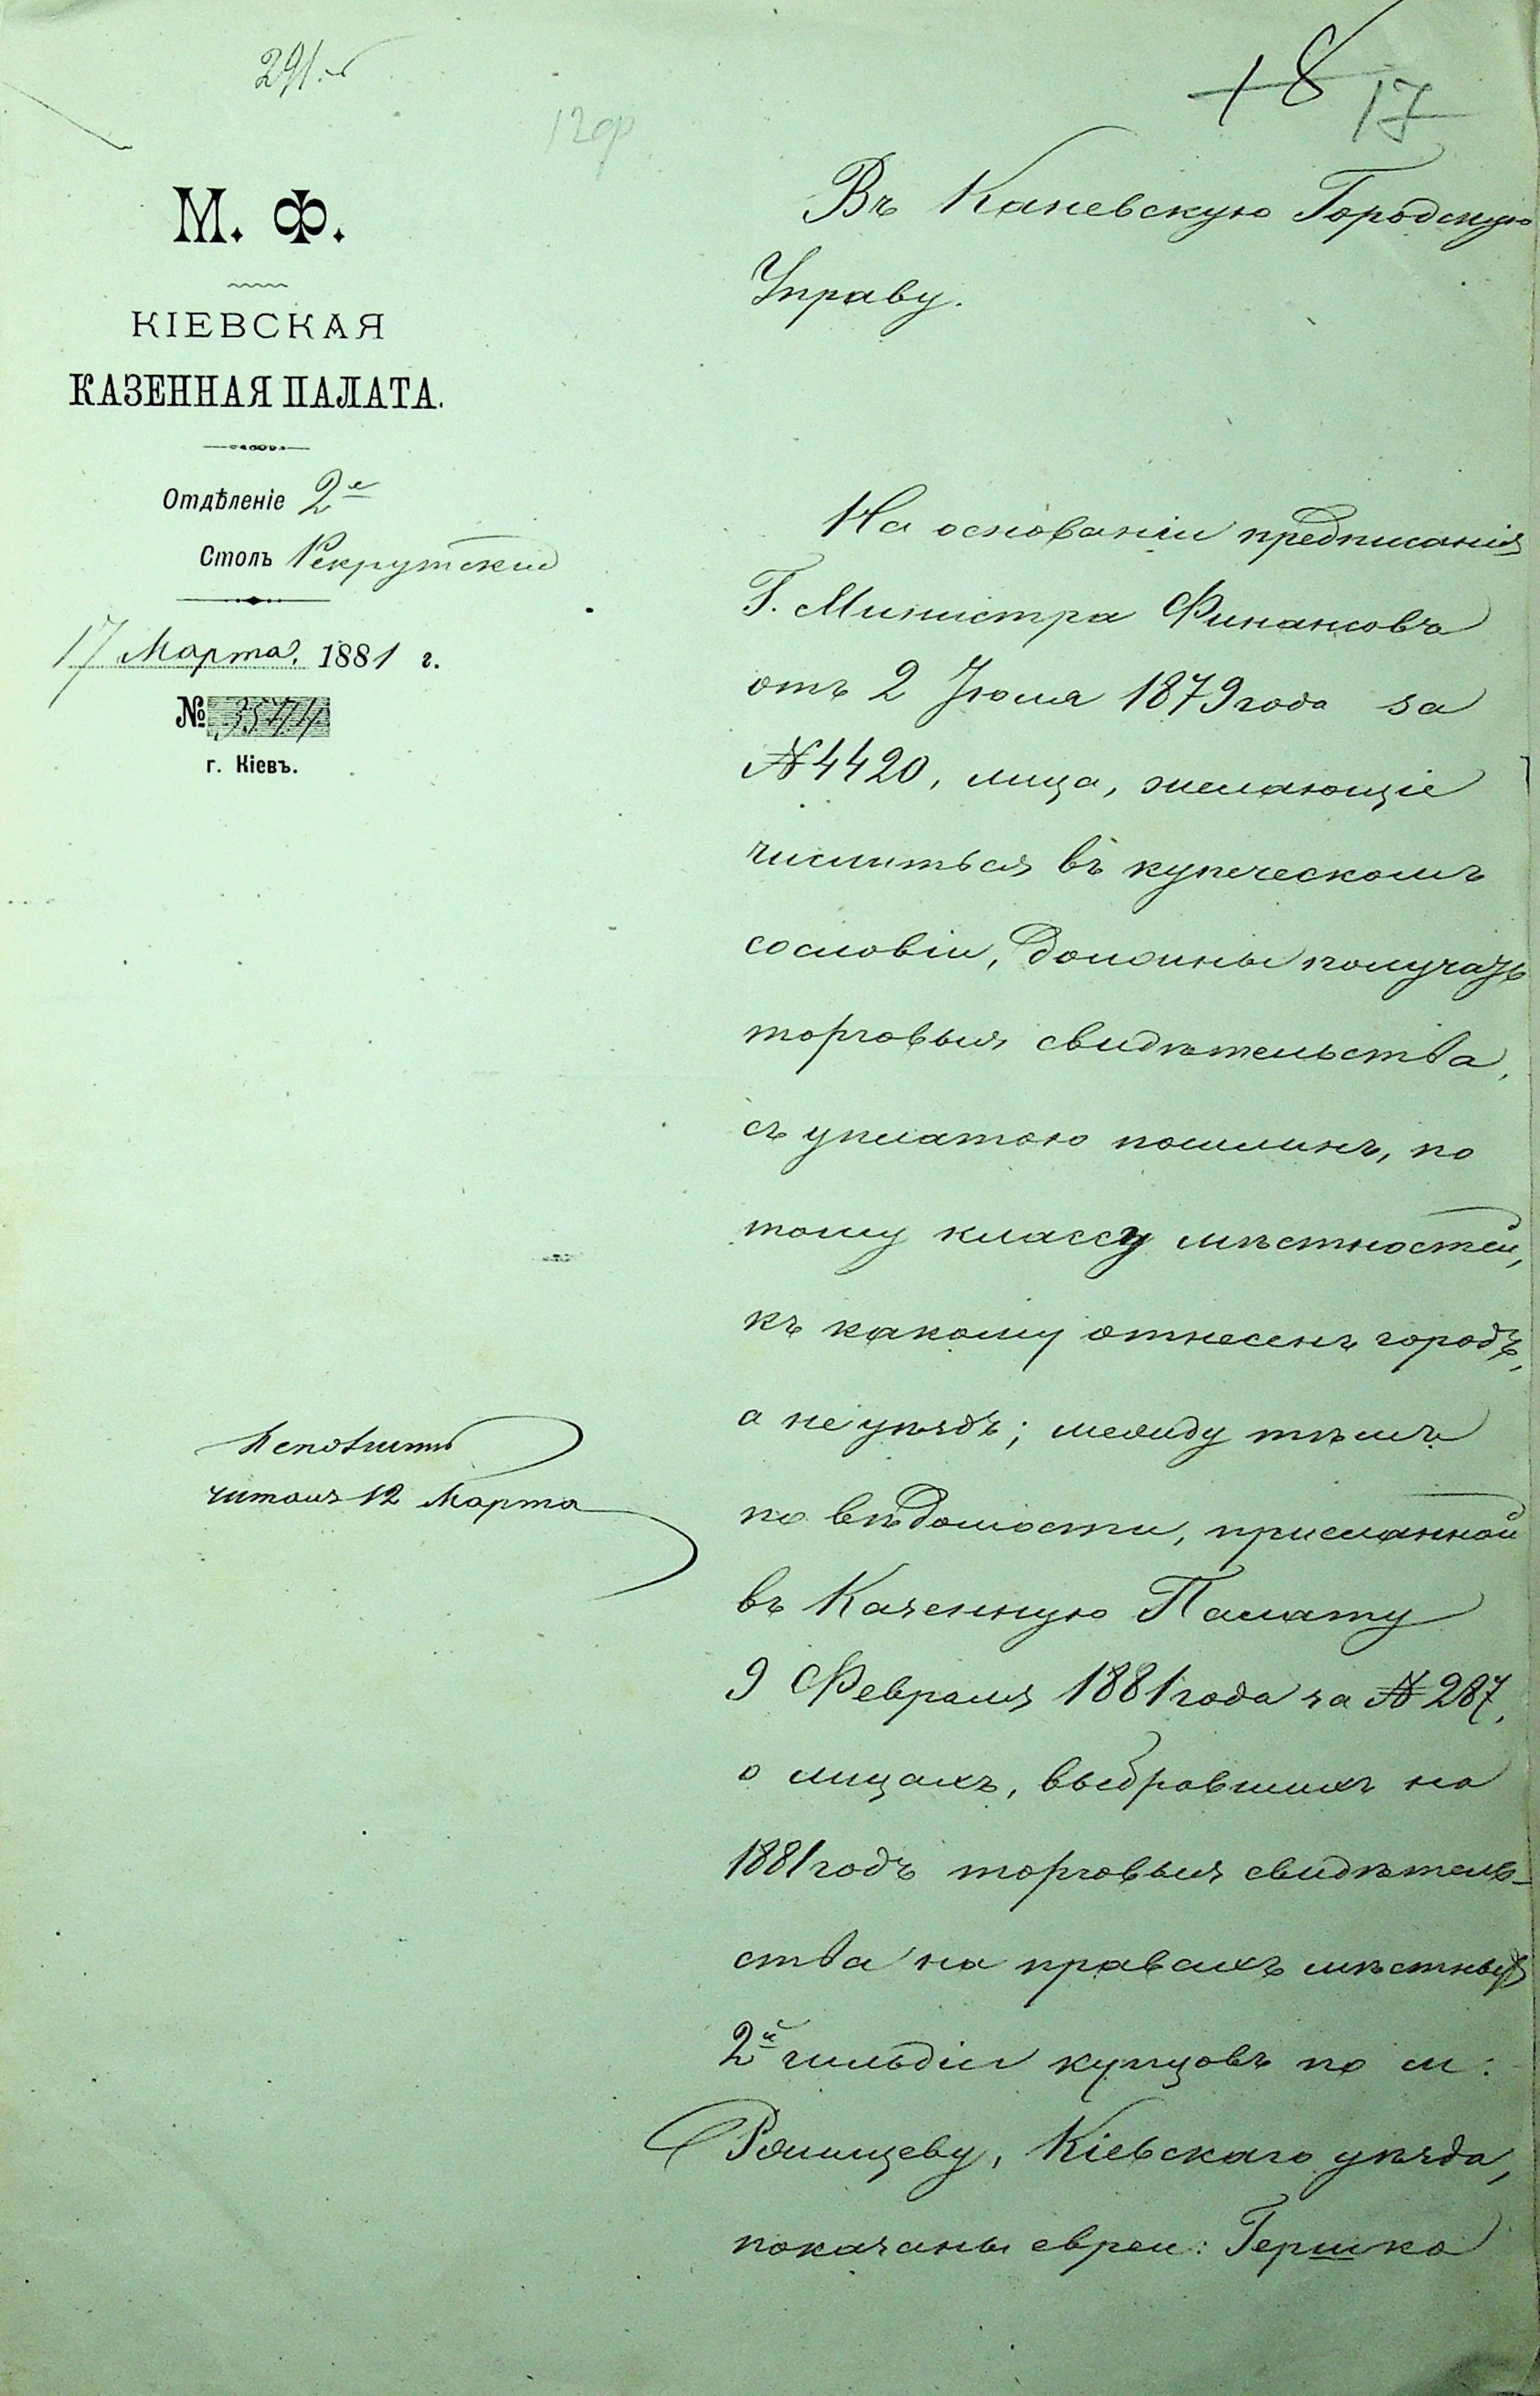 291.
18
17
М. Ф.
КІЕВСКАЯ
КАЗЕННАЯ ПАЛАТА.
Отдѣленіе 2е
Столъ Рекрутскій
17 Марта 1881 г.
№
г. Кіевъ.
Въ Каневскую Городскую
Управу.
На основаніи предписанія
Г. Министра Финансовъ
отъ 2 Іюля 1879 года за
№ 4420, лица, желающіе
числиться въ купеческомъ
сословіи, должны получать
торговыя свидѣтельства,
съ уплатою пошлинъ, по
тому классу мѣстностей,
къ какому отнесенъ городъ,
а не уѣздъ; между тѣмъ
по вѣдомости, присланной
въ Казенную Палату
9 Февраля 1881 года за № 287,
о лицахъ, выбравшихъ на
1881 годъ торговыя свидѣтель-
ства на правахъ мѣстныхъ
2й гильдіи купцовъ по м.
Ржищеву, Кіевскаго уѣзда,
показаны евреи: Гершко
читалъ 12 Марта